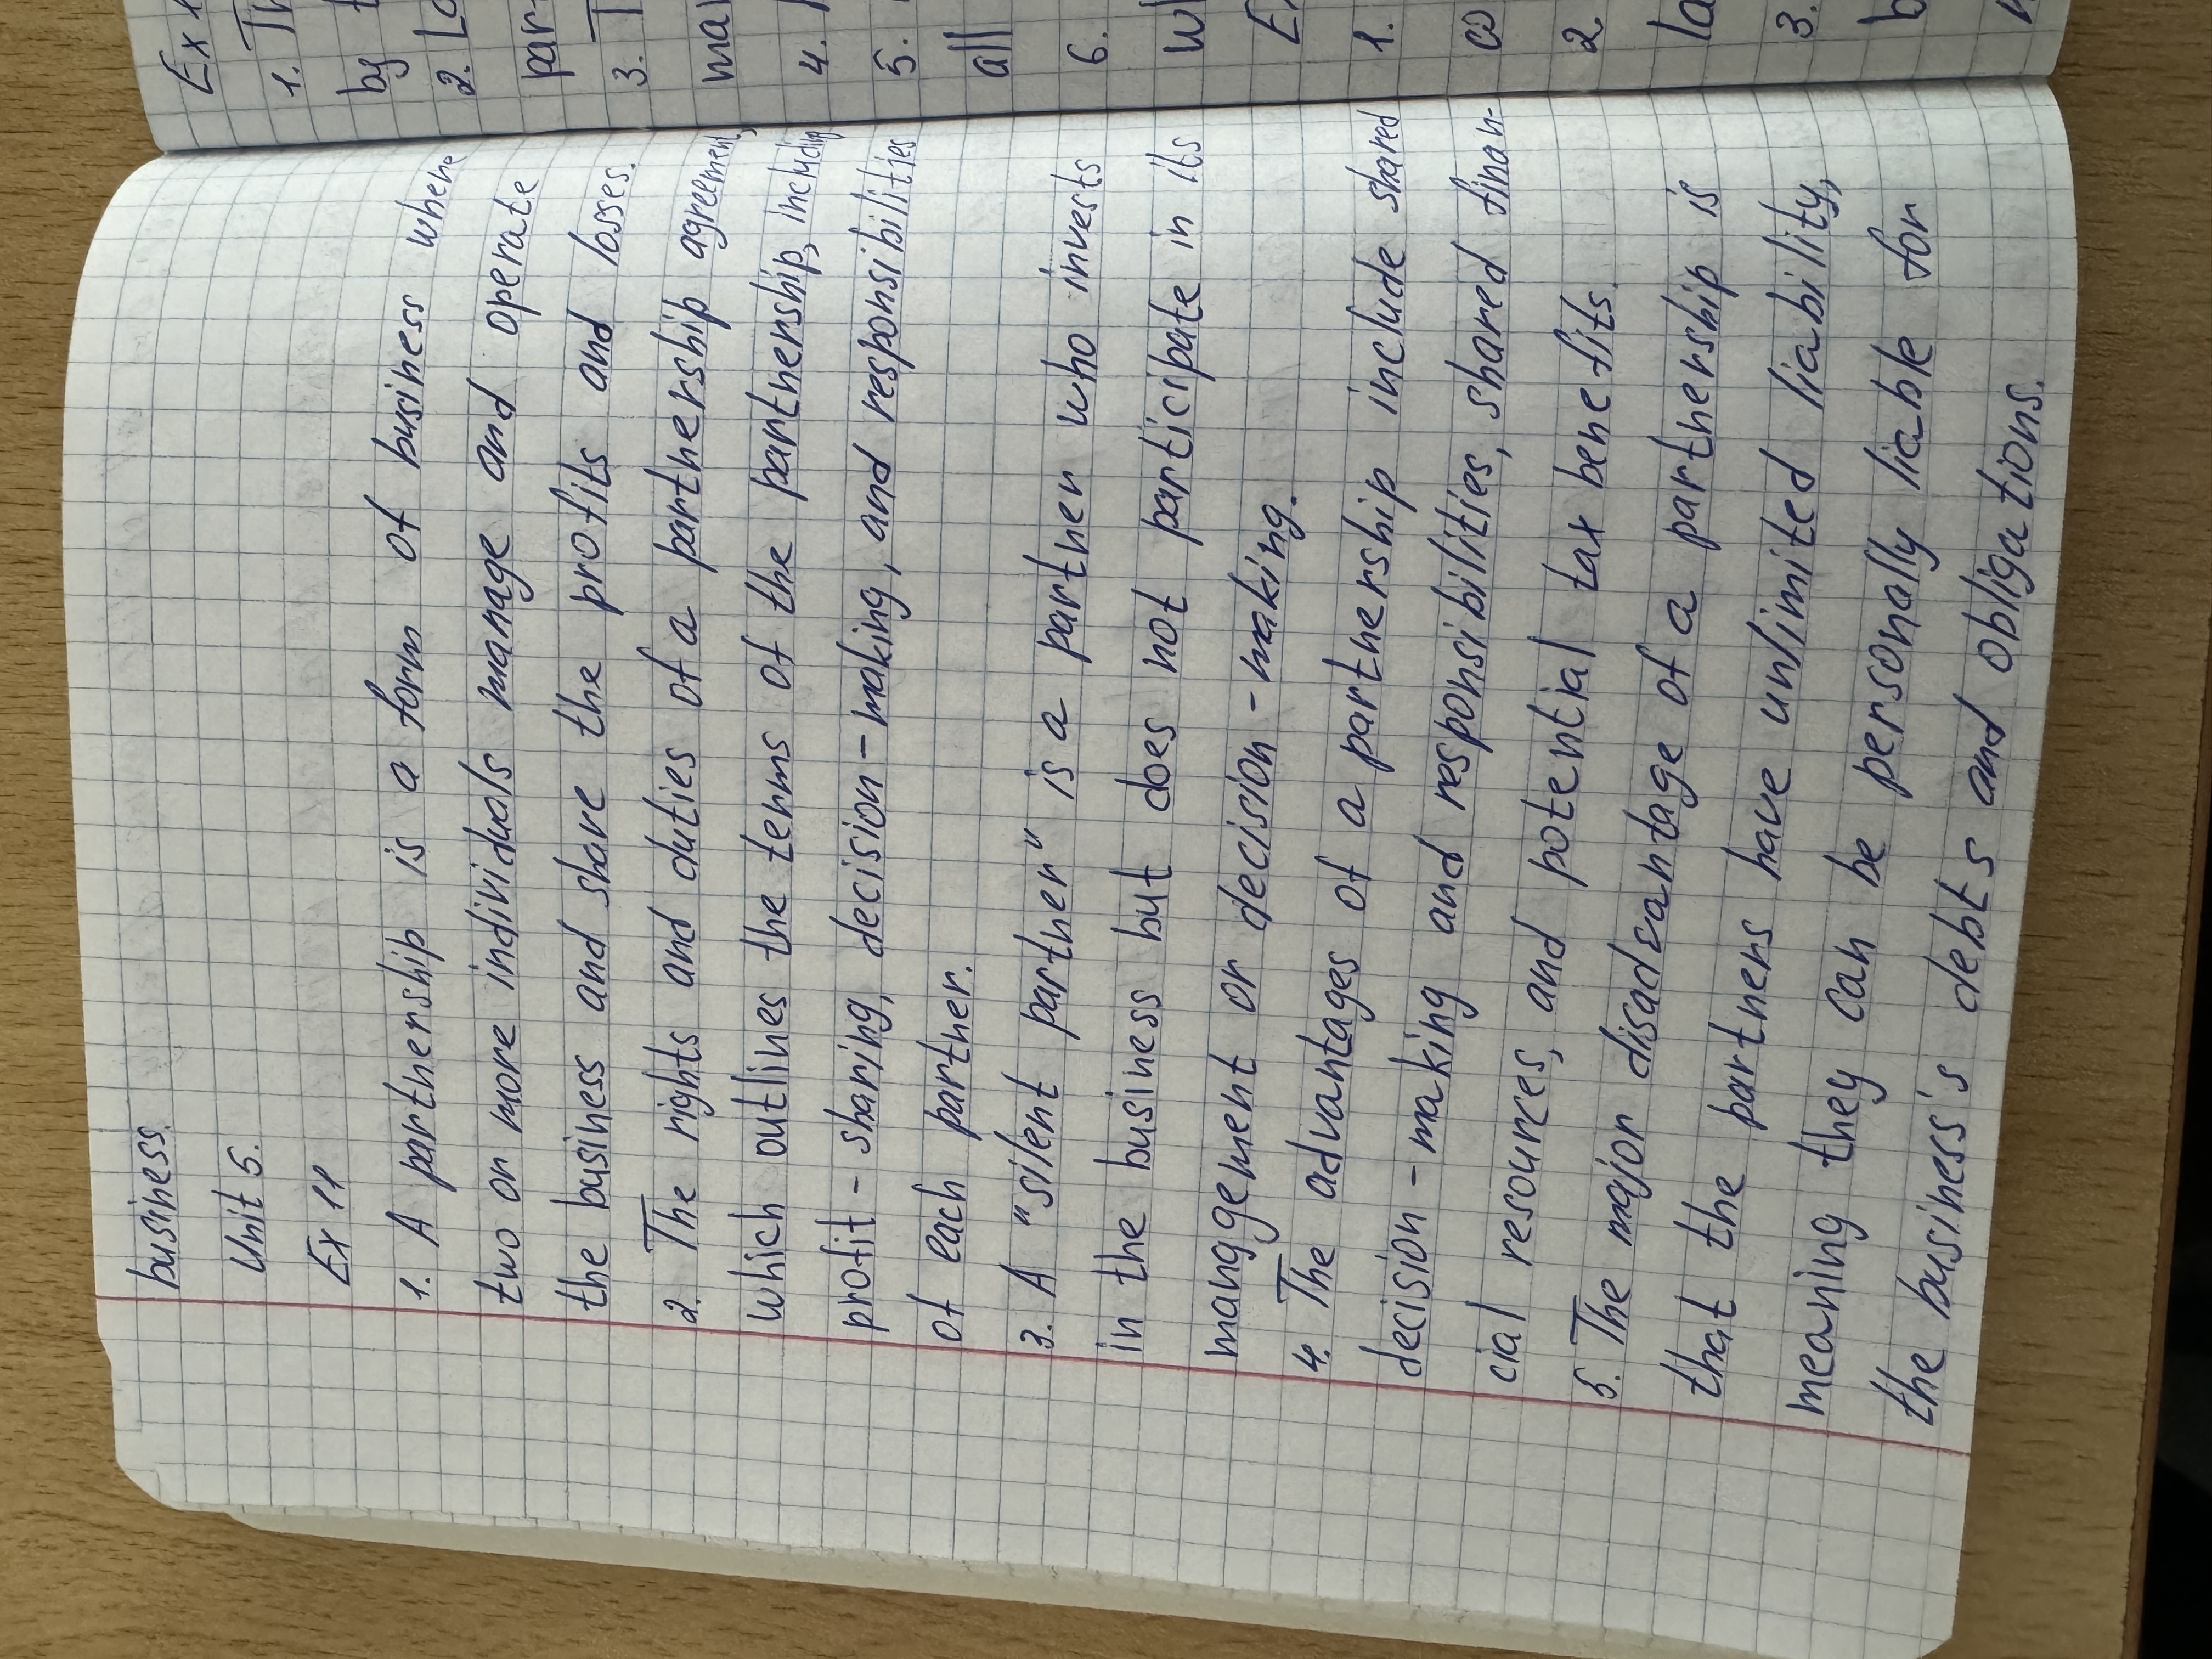 business.
Unit 5.
Ex 11
1. A parthership is a form of business where
two or more individuals manage and operate
the business and share the profits and losses.
2. The rights and duties of a parthership agreement,
which outlines the terms of the parthership, including
profit-sharing, decision-making, and responsibilities
of each partner.
3. A "silent partner" is a partner who invests
in the business but does not participate in its
management or decision-making.
4. The advantages of a parthership include shared
decision-making and responsibilities, shared finan-
cial resources, and potential tax benefits.
5. The major disadvantage of a parthership is
that the partners have unlimited liability,
meaning they can be personally liable for
the business's debts and obligations.
Ex 1
1. Th
by t
2. Lo
par-
3. T
mar
4.
5.
all
6.
wh
Ex
1.
co
2.
la
3.
b